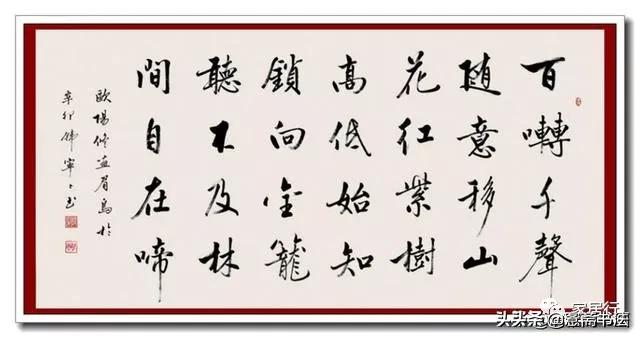 百囀千聲
随意移山
花红紫樹
高低始知
鎖向金籠
聽不及林
間自在啼
歐陽修画眉鳥於
辛卯
家居行
头条
书法